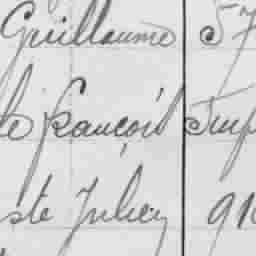 Guillaume 57
le françois Imp
ste Julien 91